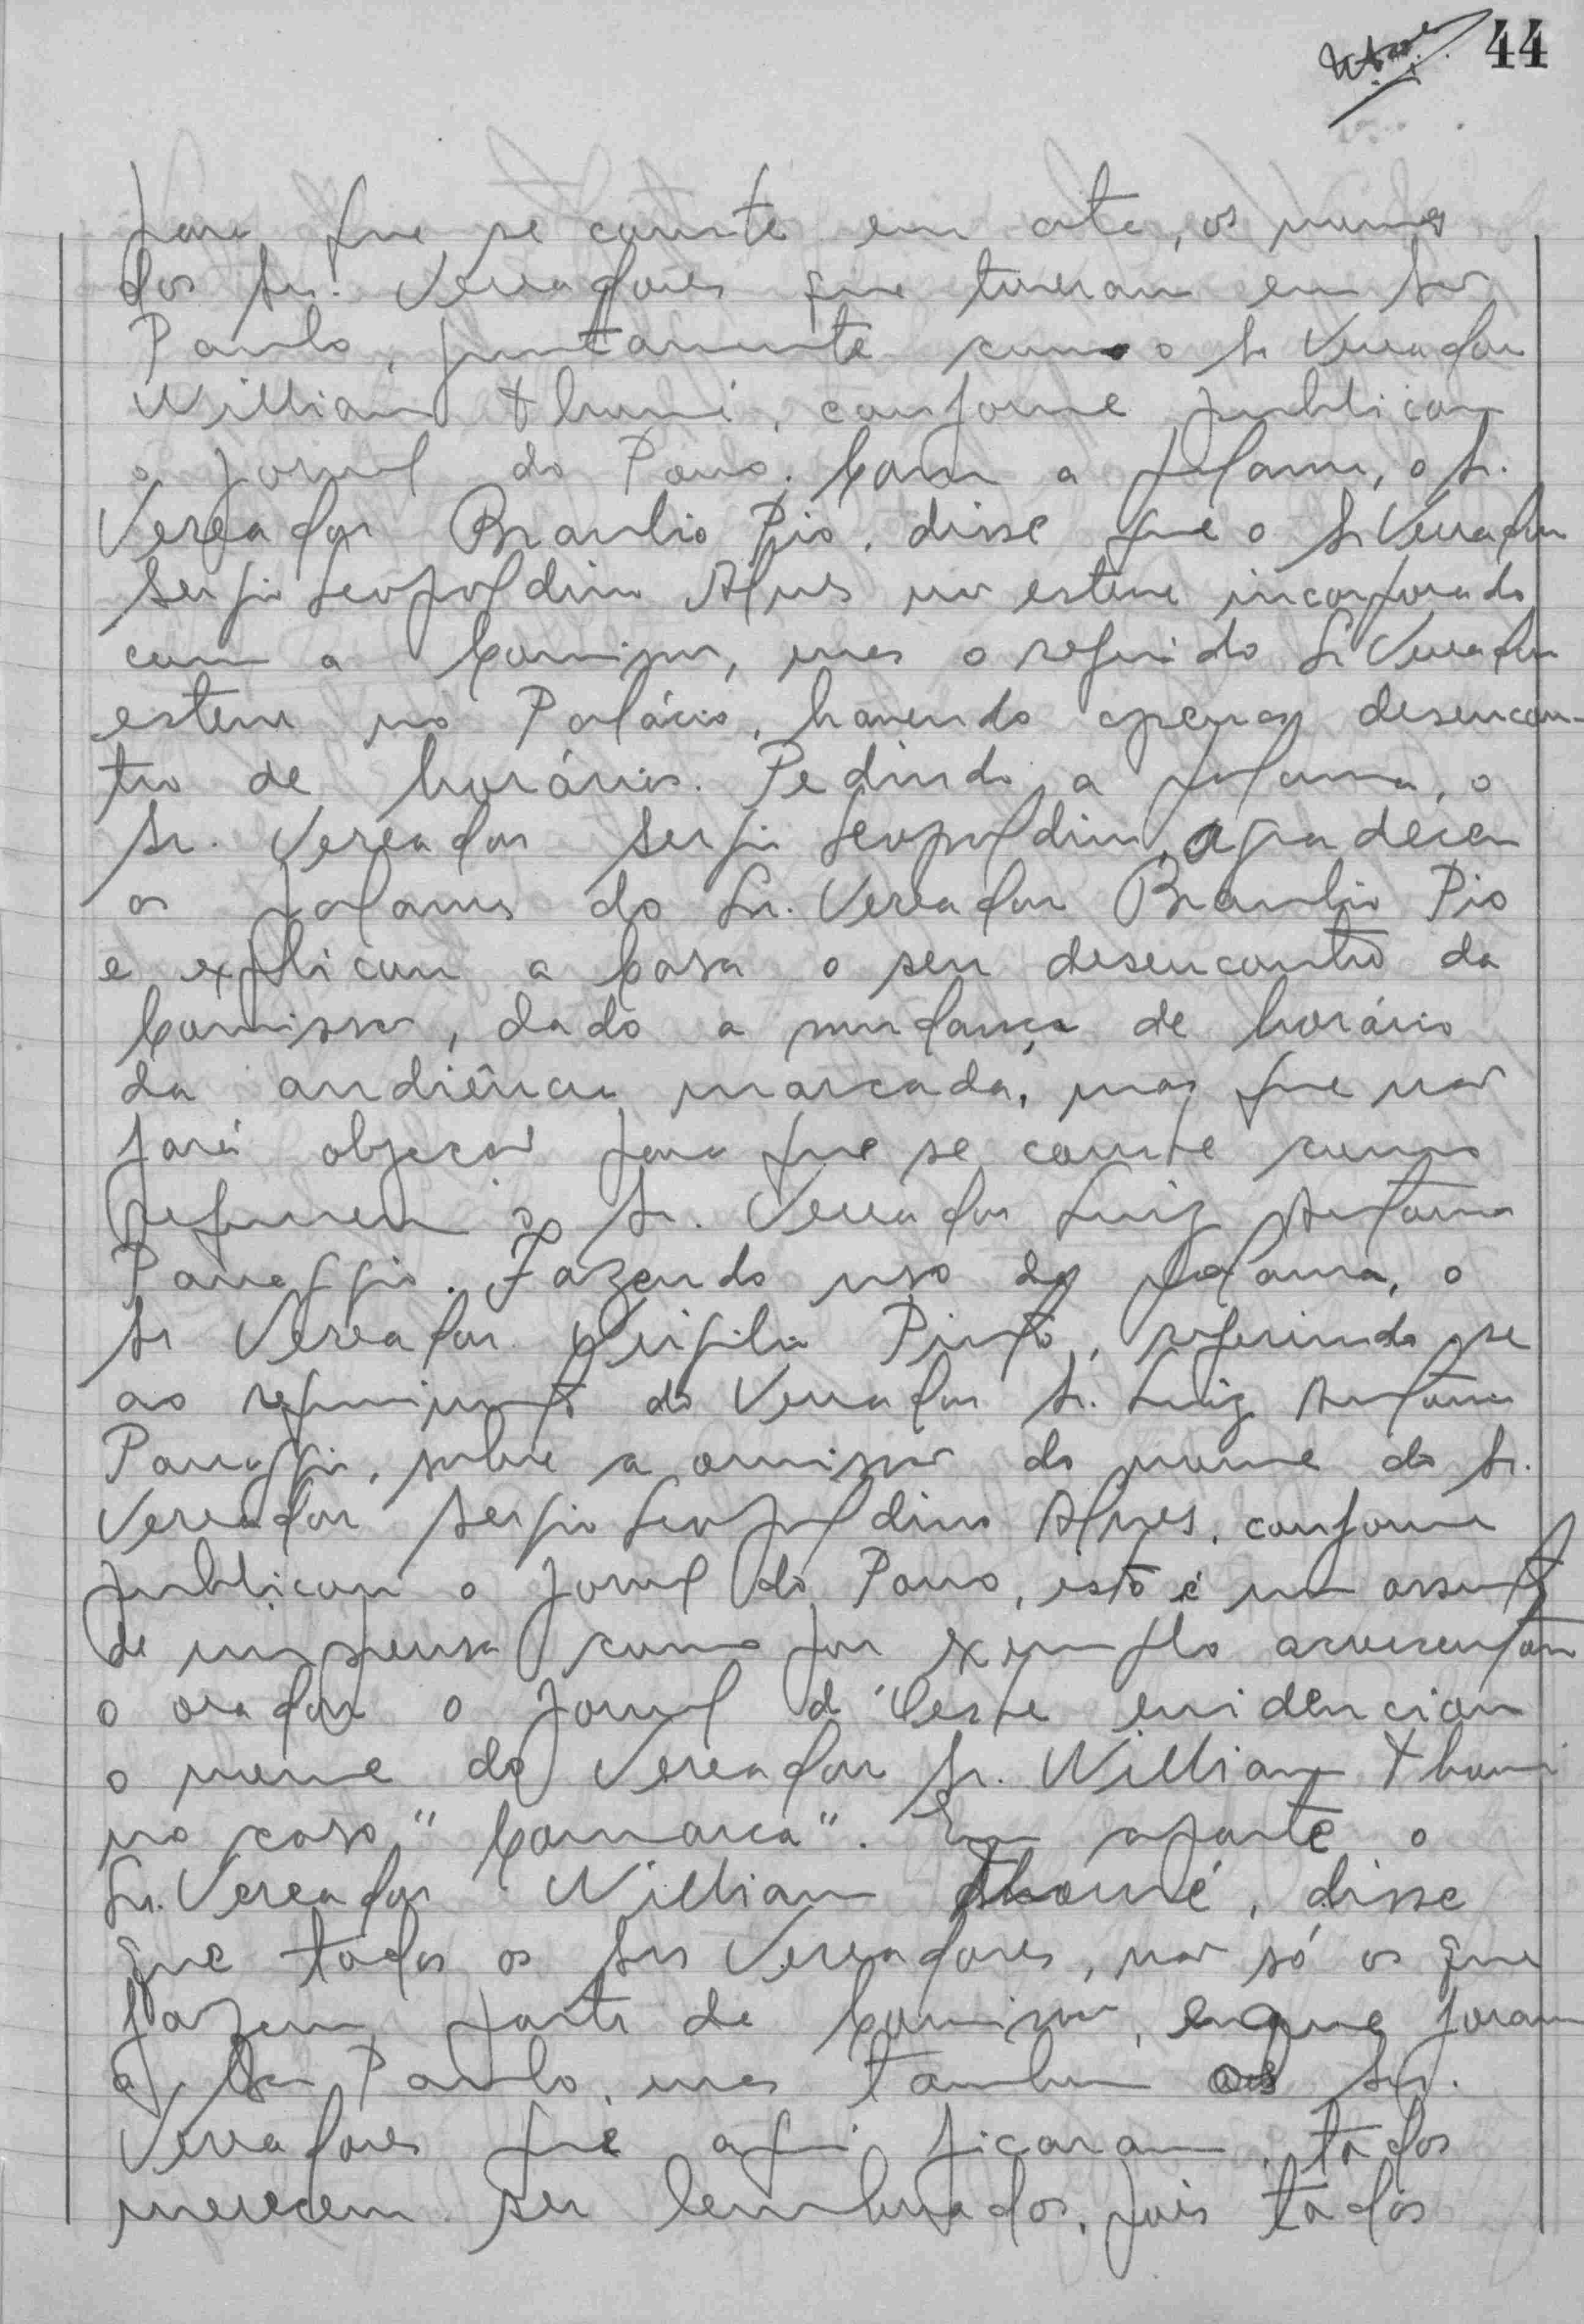 44
para que se conste em ata, os nomes
dos Srs. Vereadores que tiveram em São
Paulo, juntamente com o Sr Vereador
William Thomé, conforme publicou
o Jornal do Povo. Com a palavra, o Sr.
Vereador Braulio Pio, disse que o Sr Vereador
Sergio Leopoldino Alves não esteve incorporado
com a Comissão, mas o referido Sr Vereador
esteve no Palácio, havendo apenas desencon-
tro de horários. Pedindo a palavra, o
Sr. Vereador Sergio Leopoldino, agradeceu
as palavras do Sr. Vereador Braulio Pio
e explicou a Casa o seu desencontro da
Comissão, dado a mudança de horário
da audiência marcada, mas que não
fará objeção para que se conste como
requereu o Sr. Vereador Luiz Antonio
Panaggio. Fazendo uso da palavra, o
Sr Vereador Virgilio Pinto, referindo se
ao requerimento do Vereador Sr. Luiz Antonio
Panaggio, sobre a omissão do nome do Sr.
Vereador Sergio Leopoldino Alves, conforme
publicou o Jornal do Povo, isto é um assunto
de imprensa como por exemplo acrescentou
o orador o Jornal d'Oeste evidenciou
o nome do Vereador Sr. William Thomé
no caso "Comarca". Em aparte o
Sr. Vereador William Thomé, disse
que todos os Srs Vereadores, não só os que
fazem parte de Comissão, e que foram
a São Paulo, mas também os Srs.
Vereadores que aqui ficaram, todos
merecem ser lembrados, pois todos